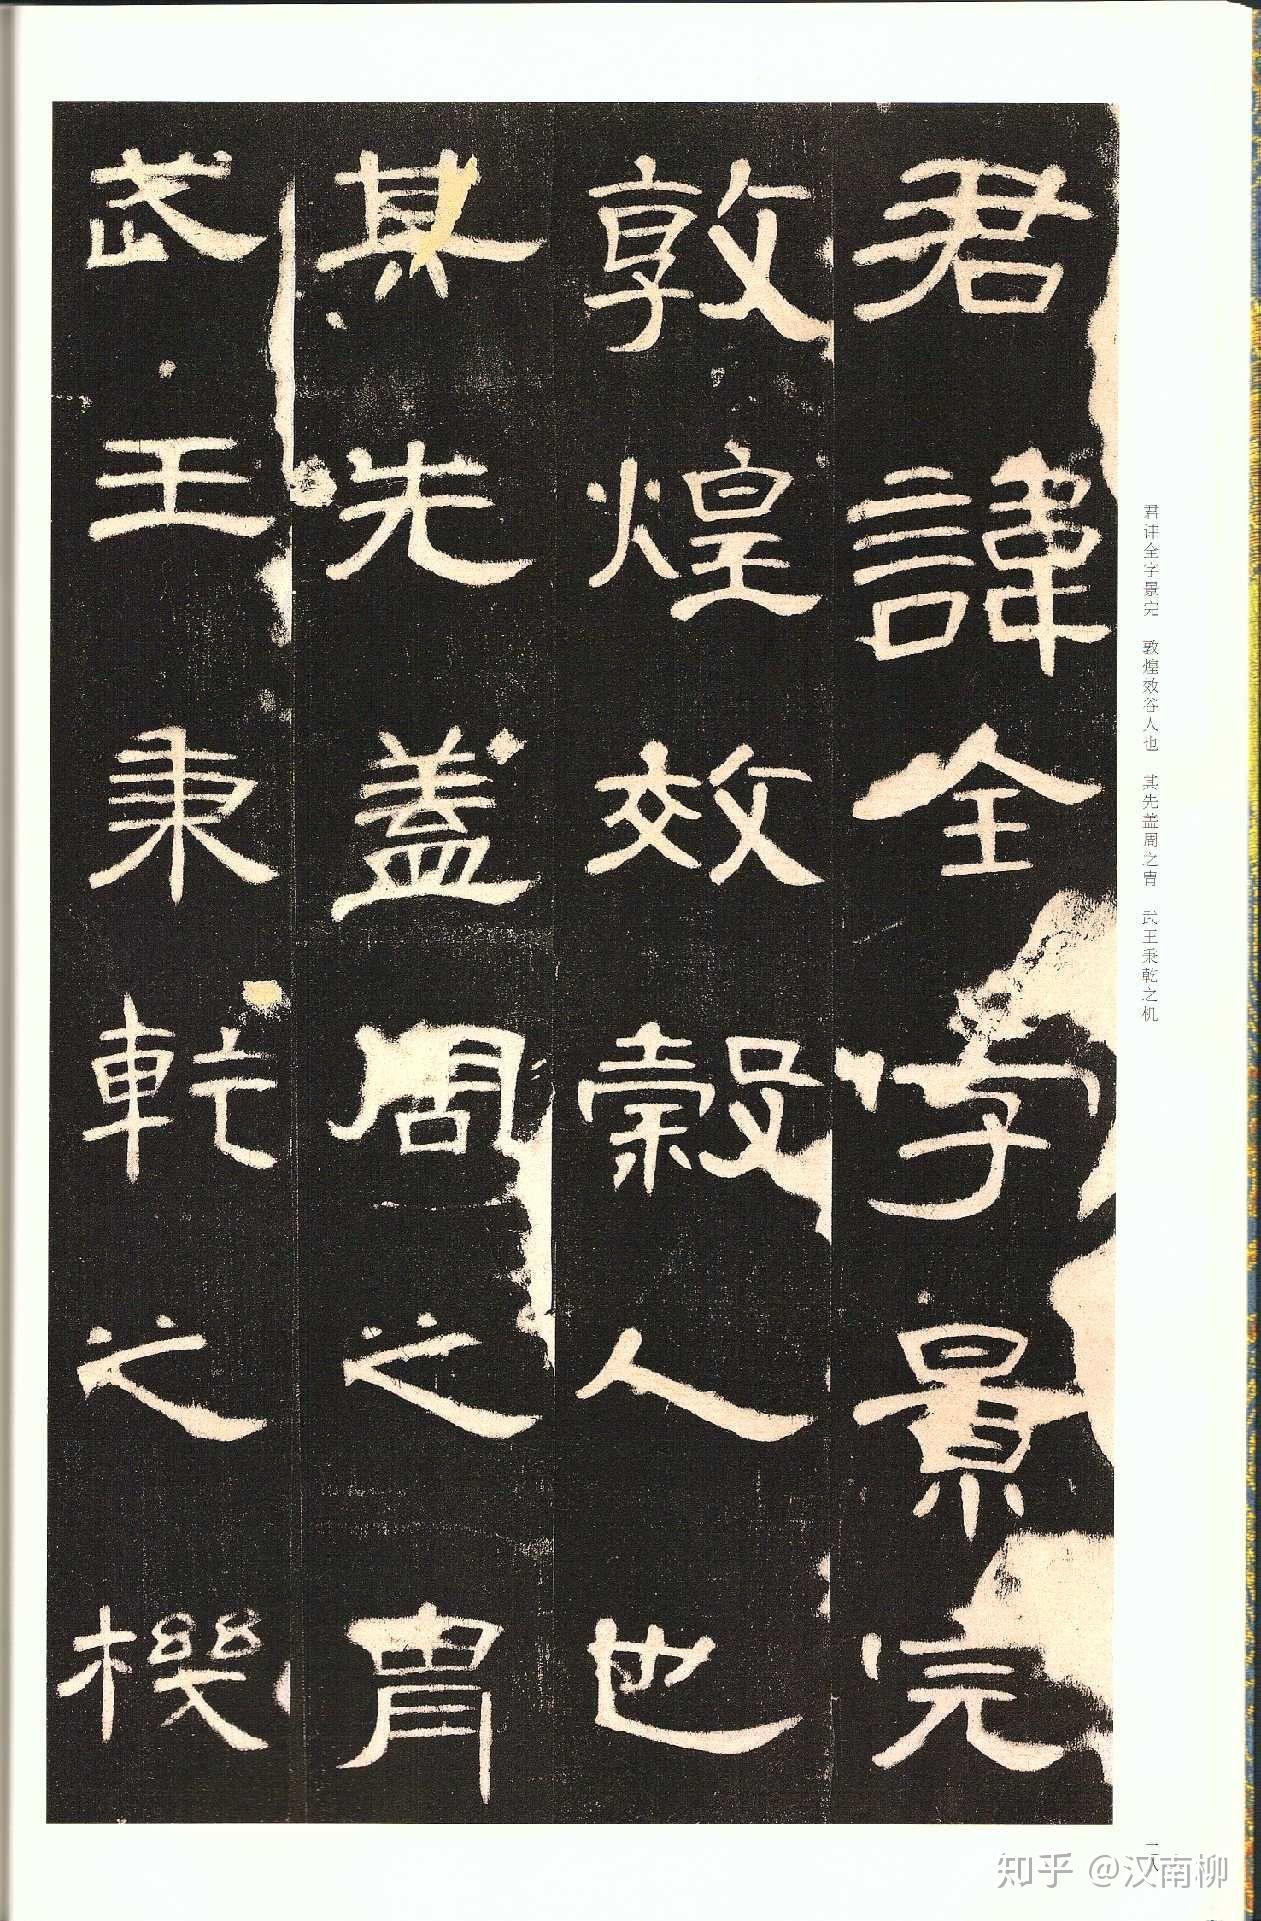 君諱全字景完
敦煌效穀人也
其先蓋周之胄
武王秉乾之機
君讳全字景完　敦煌效谷人也　其先盖周之胄　武王秉乾之机
知乎 @汉南柳